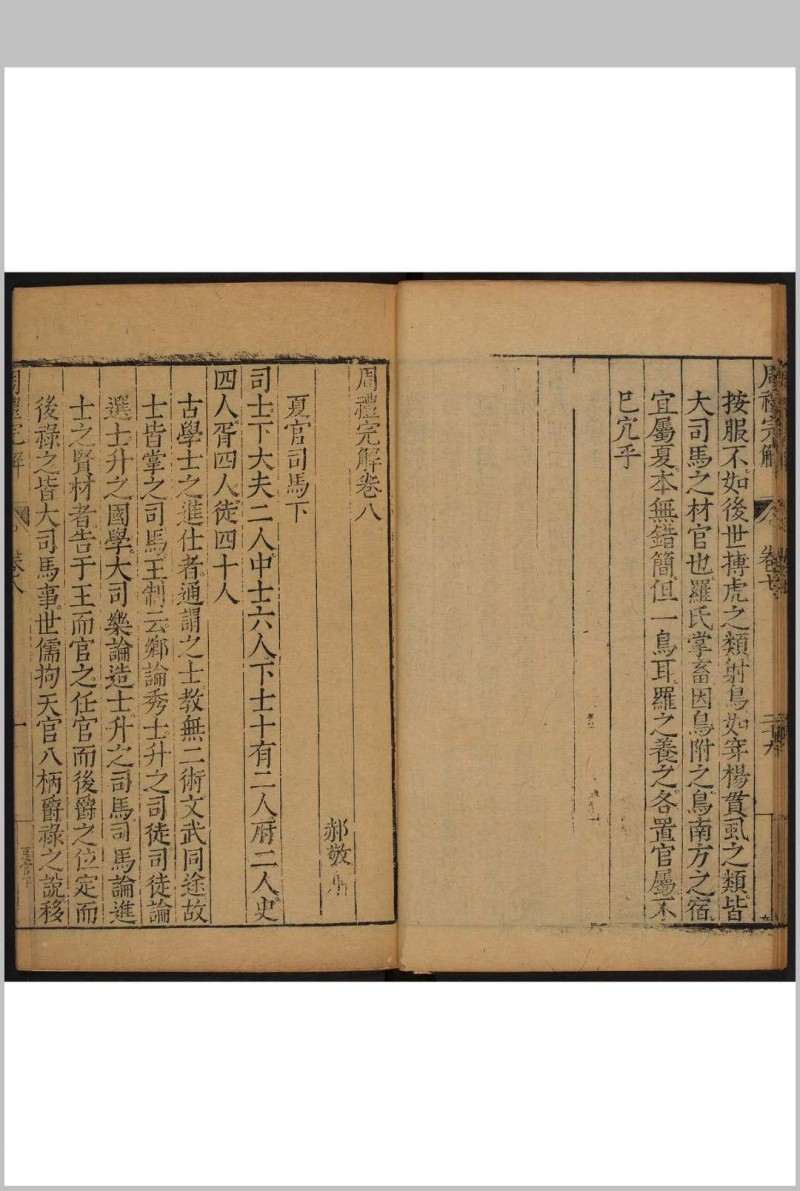 周禮完解
卷七
三十九
按服不如後世搏虎之類射鳥如穿楊貫虱之類皆
大司馬之材官也羅氏掌畜因鳥附之鳥南方之宿
宜屬夏本無錯簡但一鳥耳羅之養之各置官屬不
已冗乎
周禮完解卷八
郝敬
夏官司馬下
司士下大夫二人中士六人下士十有二人府二人史
四人胥四人徒四十人
古學士之進仕者通謂之士教無二術文武同途故
士皆掌之司馬王制云鄉論秀士升之司徒司徒論
選士升之國學大司樂論造士升之司馬司馬論進
士之賢材者告于王而官之任官而後爵之位定而
後祿之皆大司馬事世儒拘天官八柄爵祿之說移
周禮完解
卷八
一
夏官下